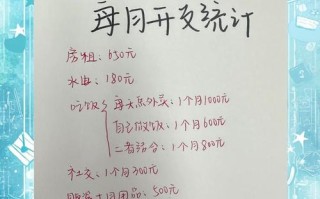 每月开支统计
房租：650元
水电：180元
吃饭
每天点外卖：1个月1000元
自己做饭：1个月600元
二者结合：1个月800元
社交：1个月300元
用品：500元